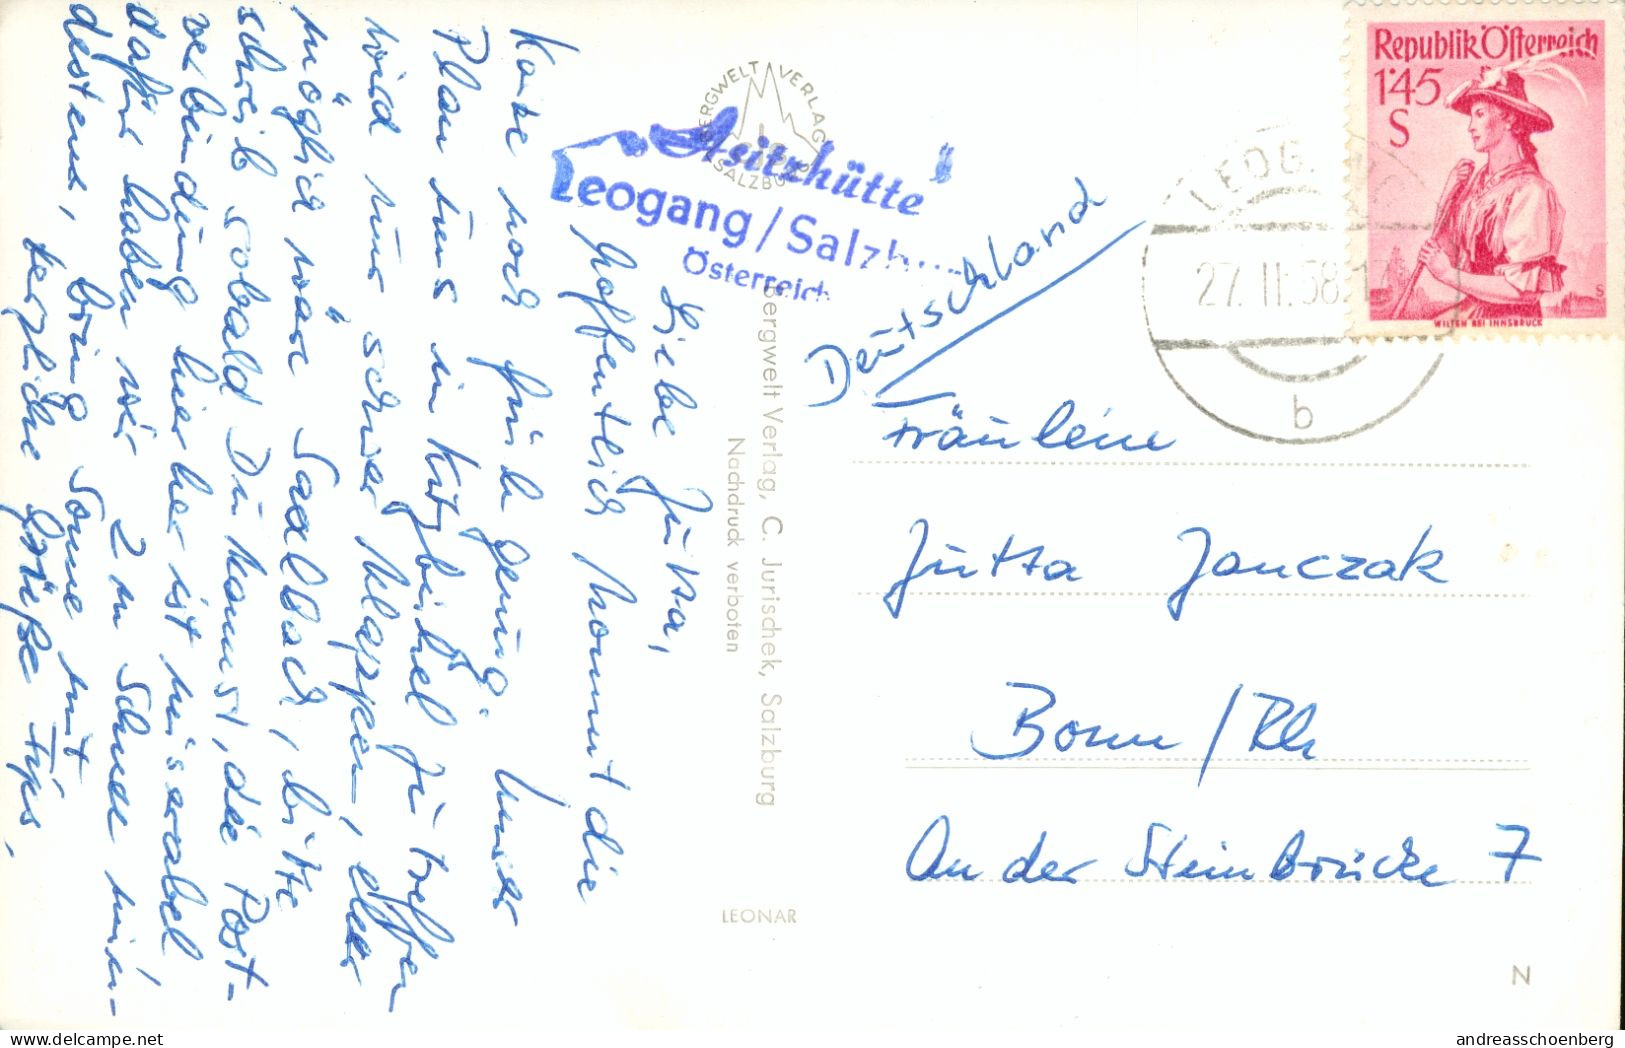 Liebe Jutta,
hoffentlich kommt die
Karte noch früh genug. Unser
Plan uns in Kitzbühel zu treffen
wird nur schwer klappen, eher
möglich wäre Saalbach, bitte
schreib sobald Du kannst, die Post-
verbindung hierher ist miserabel
dafür haben wir 2 m Schnee min-
destens, bring Sonne mit
herzliche Grüße Tips.
BERGWELT VERLAG
SALZBURG
"Asitzhütte"
Leogang/Salzburg
Österreich
Bergwelt Verlag, C. Jurischek, Salzburg
Nachdruck verboten
LEONAR
Republik Österreich
1'45
S
WILTEN BEI INNSBRUCK
LEOGANG
27. II. 58
b
Deutschland
Fräulein
Jutta Janczak
Bonn/Rh
An der Steinbrücke 7
N
delcampe.net
andreasschoenberg